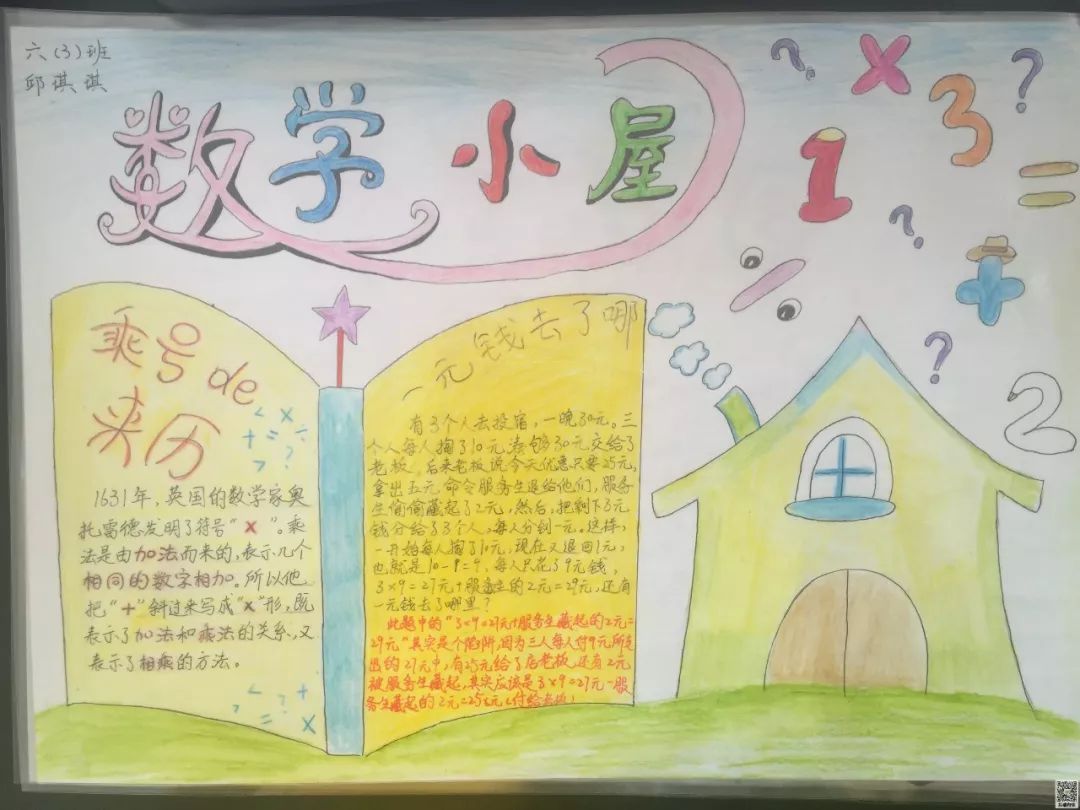 六(3)班
邱琪琪
数学小屋
乘号de
来历
1631年,英国的数学家奥
托雷德发明了符号"×"。乘
法是由加法而来的,表示几个
相同的数字相加。所以他
把"+"斜过来写成"×"形,既
表示了加法和乘法的关系,又
表示了相乘的方法。
一元钱去了哪
有3个人去投宿,一晚30元。三
个人每人掏了10元凑够30元交给了
老板。后来老板说今天优惠只要25元,
拿出五元命令服务生退给他们,服务
生偷偷藏起了2元,然后,把剩下3元
钱分给了3个人,每人分到一元。这样,
一开始每人掏了10元,现在又退回1元,
也就是10-1=9,每人只花了9元钱,
3×9=27元+服务生的2元=29元,还有
一元钱去了哪里?
此题中的"3×9=27元+服务生藏起的2元=
29元"其实是个陷阱,因为三人每人付9元所支
出的27元中,有25元给了店老板,还有2元
被服务生藏起,其实应该是3×9=27元-服
务生藏起的2元=25元(付给老板)
× 3 1 = ÷ + 2